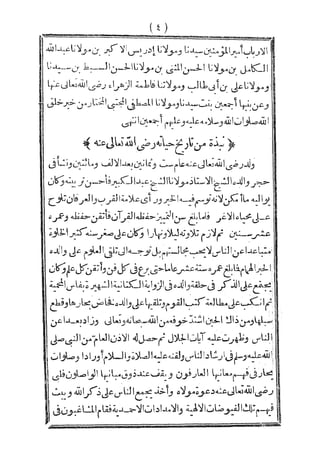 ( ٤ )
الارباب أمير المؤمنين سيدنا ومولانا إدريس الاكبر بن مولانا عبدالله
الكامل بن مولانا الحسن المثنى بن مولانا الحسن السبط بن سيدنا
ومولانا على بن أبى طالب ومولاتنا فاطمة الزهراء رضى الله تعالى عنها
وعن بنيها أجمعين بنت سيدنا ومولانا المصطفى المجتبى المختار من خير خلق
الله صلوات الله وسلامه عليه وعليهم أجمعين انتهى
﴿ نبذة من تاريخ حياته رضى الله تعالى عنه ﴾
ولد رضى الله تعالى عنه عام ست وثمانين بعد الالف ومائتين ونشأ فى
حجر والده الشيخ الاستاذ مولانا الشيخ عبد الكبير فأحسن تربيته وكان
يواليه ما أمكن لانه توسم فيه الخير ورأى علامة القرب والعرفان تلوح
على محياه الاغر فلما بلغ سن التمييز حفظه القرآن فأتقن حفظه وعمره
عشر سنين ثم لازم تلاوته ليلا ونهارا وكان على صغر سنه كثير الخلوة
متباعدا عن الناس لا يحب مجالستهم بل توجه الى تلقى العلوم على والده
الحبر الهمام فما بلغ عمره ستة عشر عاما حتى برع فى كل فن وأتقن كل علم وكان
يجتمع على الذكر فى حلقة والده فى الزاوية الكتانية الشهيرة بفاس المحمية
ثم انكب على مطالعة كتب القوم وتلقيها على والده فخاض بحارها وقطع
سبلها ومن ذلك الحين اشتد خوفه من الله سبحانه وتعالى وزاد بعدا عن
الناس وظهرت عليه آيات الجلال ثم حصل له الاذن العام من النبى صلى
الله عليه وسلم فى ارشاد الناس ولقنه عليه الصلاة والسلام أورادا وصلوات
يحار فى فهم معانيها العارفون ويقف عند ذوق مبانيها الواصلون فلبى
رضى الله تعالى عنه دعوة مولاه وأخذ يجمع الناس على ذكر الله ويبث
فيهم تلك الفيوضات الالهية والامدادات الاحمدية فقام المشاغبون فى